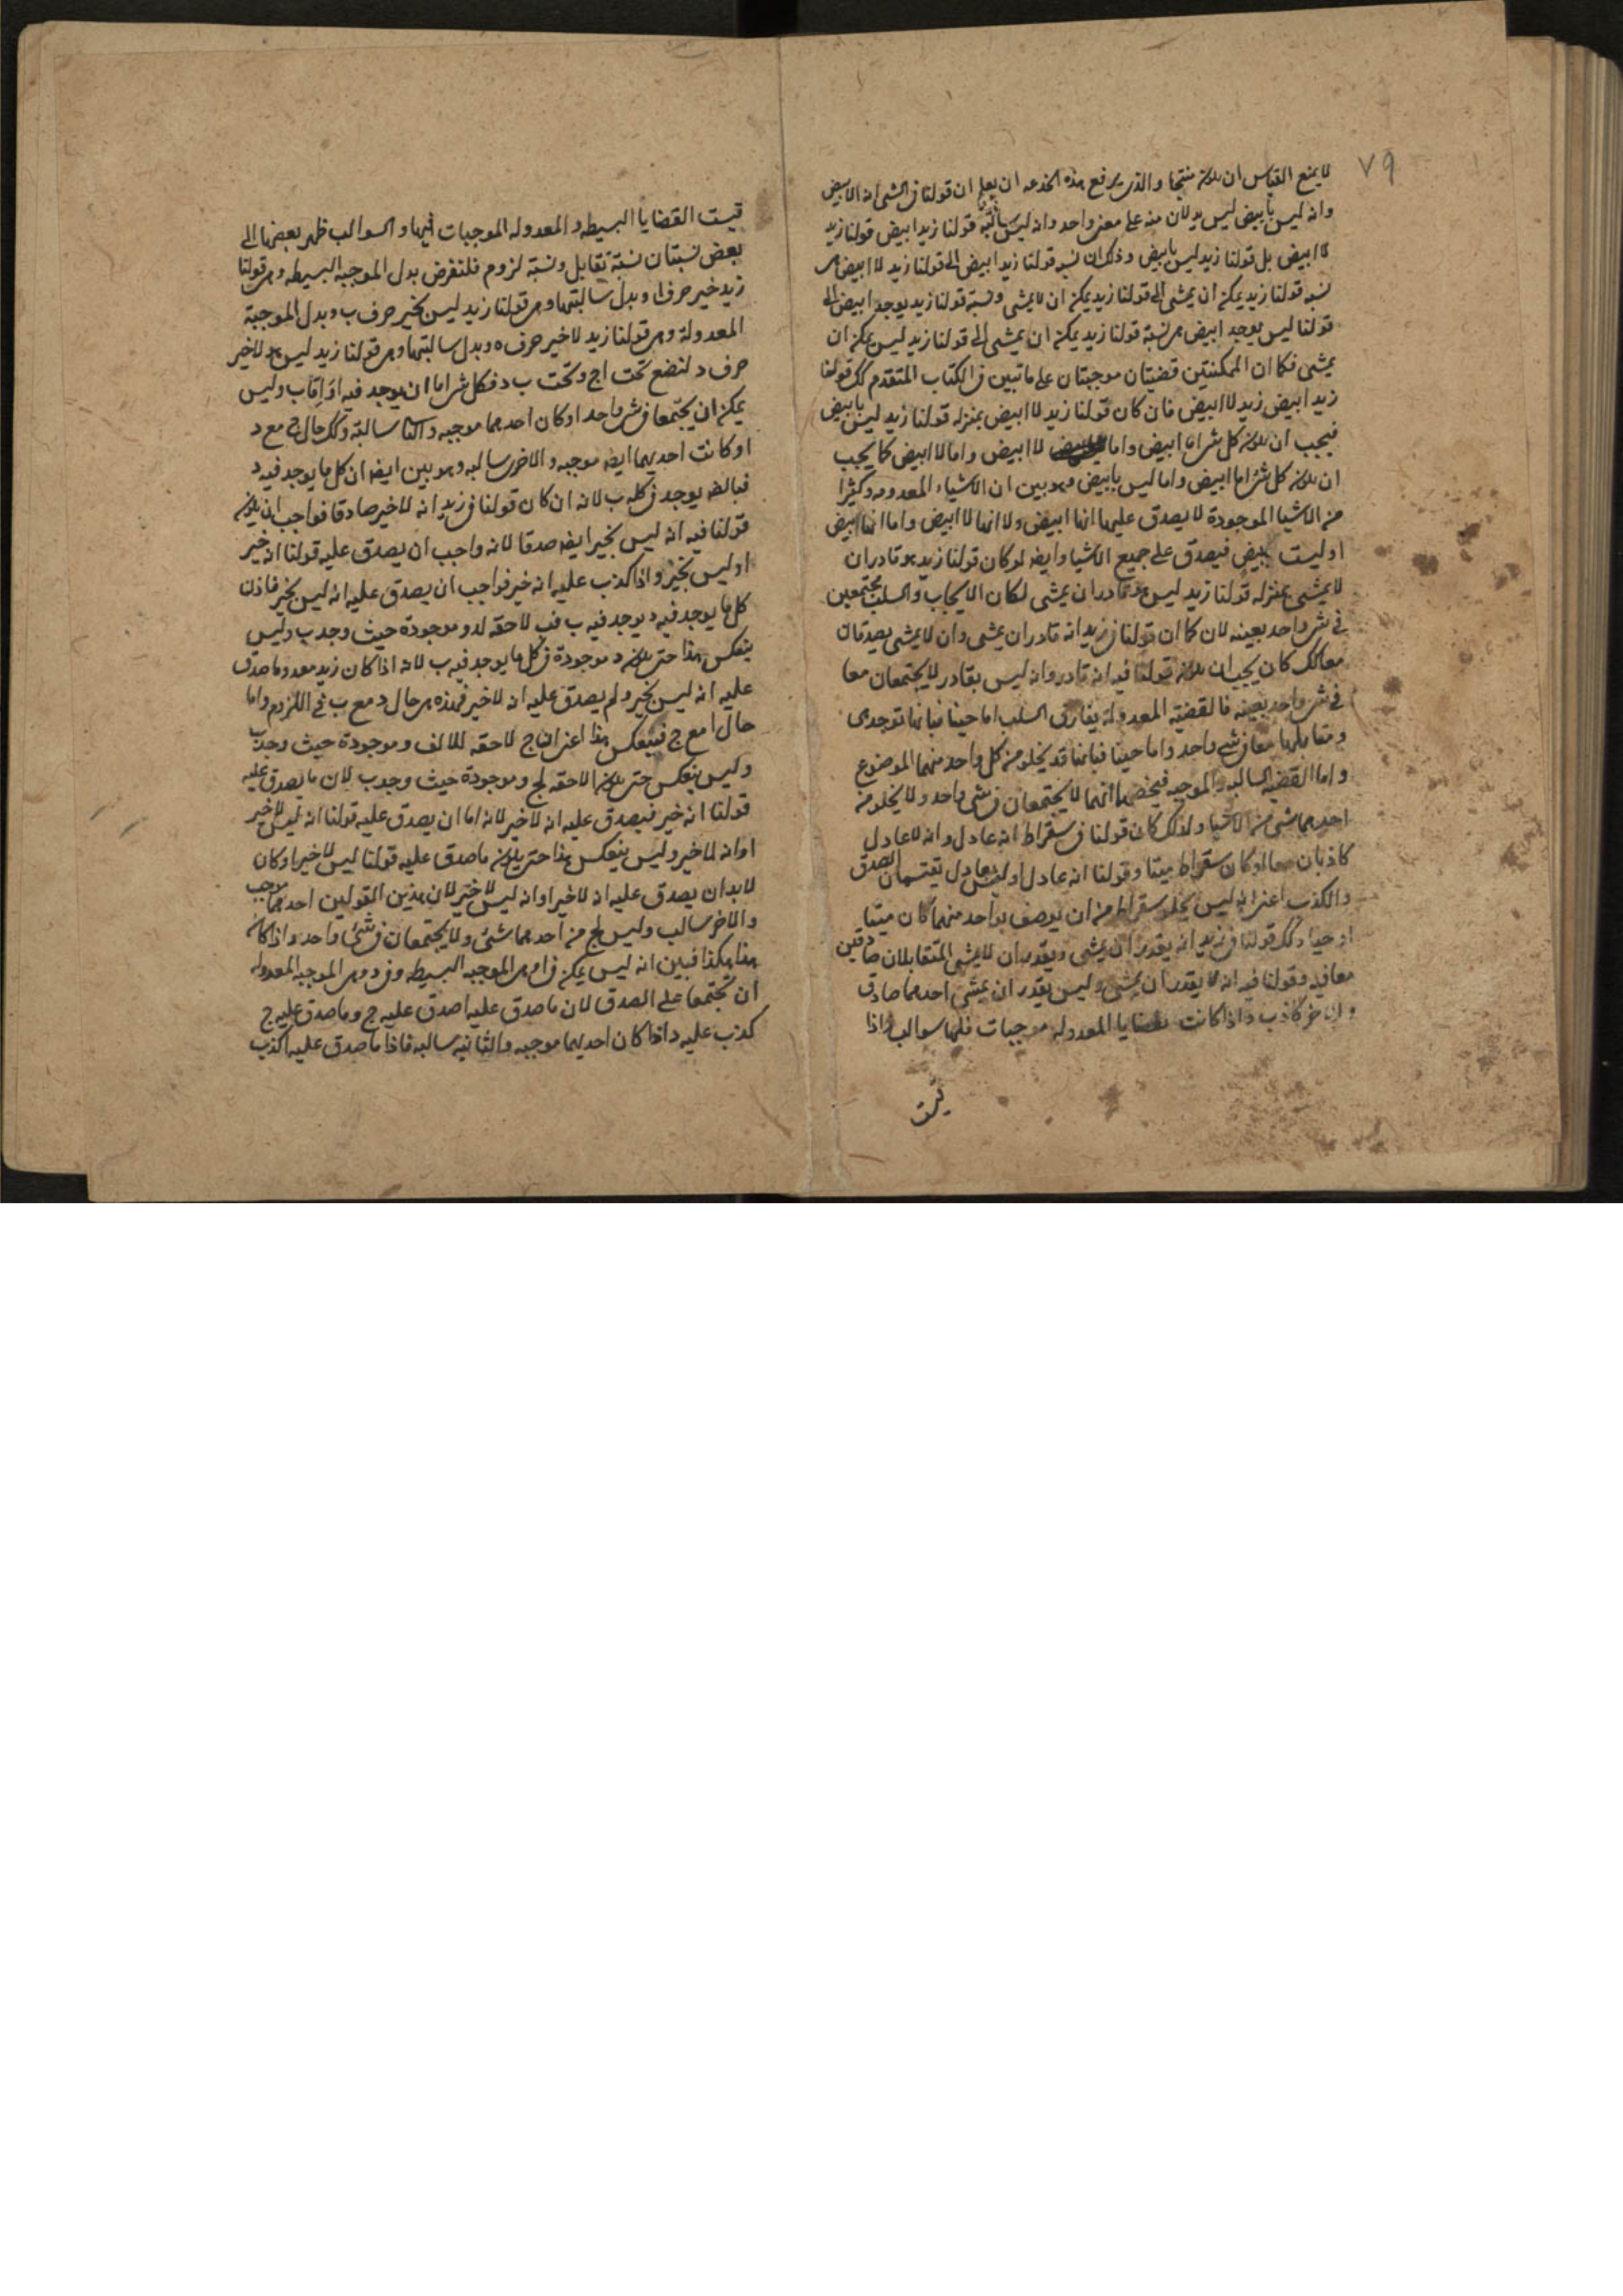 ٧٩
لا يمنع القياس ان يكون منتجا والذى يرفع هذه الخدعه ان يعلم ان قولنا فى الشى انه لا ابيض
وانه ليس بابيض ليس يدلان منه على معنى واحد وانه ليس سالبة قولنا زيد ابيض قولنا زيد
لا ابيض بل قولنا زيد ليس بابيض وذلك ان نسبه قولنا زيد ابيض الى قولنا زيد لا ابيض هى
نسبه قولنا زيد يمكنه ان يمشى الى قولنا زيد يمكنه ان لا يمشى ونسبة قولنا زيد يوجد ابيض الى
قولنا ليس يوجد ابيض هى نسبة قولنا زيد يمكنه ان يمشى الى قولنا زيد ليس يمكنه ان
يمشى فكما ان الممكنتين قضيتان موجبتان على ما تبين فى الكتاب المتقدم كك قولنا
زيد ابيض زيد لا ابيض فان كان قولنا زيد لا ابيض بمنزله قولنا زيد ليس بابيض
فيجب ان يكون كل شى اما ابيض واما لا ابيض واما لا ابيض كما يجب
ان يكون كل شى اما ابيض واما ليس بابيض وهو بين ان الاشياء المعدومه وكثيرا
من الاشيا الموجودة لا يصدق عليها انها ابيض ولا انها لا ابيض واما انها ابيض
او ليست بابيض فيصدق على جميع الاشيا وايضا لو كان قولنا زيد هو قادر ان
لا يمشى بمنزله قولنا زيد ليس هو قادر ان يمشى لكان الايجاب والسلب يجتمعين
فى شى واحد بعينه لان كما ان قولنا فى زيد انه قادر ان يمشى وان لا يمشى يصدقان
معا كك كان يجب ان يكون قولنا فيه انه قادر وانه ليس بقادر لا يجتمعان معا
فى شى واحد بعينه فالقضية المعدولة يفارق السلب اما حينا فبانها توجد هى
ومقابلها معا فى شى واحد واما حينا فبانها قد يخلو من كل واحد منهما الموضوع
واما القضية السالبه والموجبه فيخصهما انهما لا يجتمعان فى شى واحد ولا يخلو من
احدهما شى من الاشيا ولذلك كان قولنا فى سقراط انه عادل وانه لا عادل
كاذبان معا لو كان سقراط ميتا وقولنا انه عادل او ليس بعادل يقتسمان الصدق
والكذب اعنى انه ليس يخلو سقراط من ان يوصف بواحد منهما كان ميتا
او حيا وكك قولنا فى زيد انه يقدر ان يمشى ويقدر ان لا يمشى المتقابلان صادقين
معا فيه وقولنا فيه انه لا يقدر ان يمشى وليس يقدر ان يمشى احدهما صادق
والاخر كاذب واذا كانت القضايا المعدوله موجبات فلها سوالب واذا
قيست
قيست القضايا البسيطه والمعدوله الموجبات فيها والسوالب ظهر بعضها الى
بعض نسبتان نسبة تقابل ونسبة لزوم فلنفرض بدل الموجبه البسيطه وهى قولنا
زيد خير حرف ا وبدل سالبتها وهى قولنا زيد ليس بخير حرف ب وبدل الموجبة
المعدولة وهى قولنا زيد لا خير حرف ه وبدل سالبتها وهى قولنا زيد ليس هو لا خير
حرف د لنضع تحت ا ج وتحت ب د فكل شى اما ان يوجد فيه ا واما ب وليس
يمكن ان يجتمعا فى شى واحد اذ كان احدهما موجبه والثا سالبة وكك حال ج مع د
او كانت احديهما ايضا موجبه والاخرى سالبه وهو بين ايضا ان كل ما يوجد فيه د
فبالضه يوجد فى كله ب لانه ان كان قولنا فى زيد انه لا خير صادقا فواجب ان يكون
قولنا فيه انه ليس بخير ايضا صدقا لانه واجب ان يصدق عليه قولنا انه خير
او ليس بخير واذا كذب عليه انه خير فواجب ان يصدق عليه انه ليس بخير فاذن
كل ما يوجد فيه د يوجد فيه ب فب لاحقه لد وموجودة حيث وجد ب وليس
ينعكس هذا حتى يكون د موجودة فى كل ما يوجد فيه ب لانه اذا كان زيد معدوما صدق
عليه انه ليس بخير ولم يصدق عليه انه لا خير فهذه هى حال د مع ب فى اللزوم واما
حال ا مع ج فبعكس هذا اعنى ان ج لاحقه للالف وموجودة حيث وجد ب
وليس ينعكس حتى يكون الاحقه لج وموجودة حيث وجد ب لان ما يصدق عليه
قولنا انه خير فيصدق عليه انه لا خير لانه اما ان يصدق عليه قولنا انه ليس لا خير
او انه لا خير وليس ينعكس هذا حتى يكون ما صدق عليه قولنا ليس لا خير او كان
لابد ان يصدق عليه انه لا خير او انه ليس لا خير لان هذين القولين احدهما موجب
والاخر سالب وليس لج من احدهما شئ ولا يجتمعان فى شئ واحد واذا كان
هذا هكذا فبين انه ليس يمكن فى ا وهى الموجبه البسيطه وفى د وهى الموجبه المعدوله
ان تجتمعا على الصدق لان ما صدق عليه ا صدق عليه ج وما صدق عليه ج
كذب عليه د اذا كان احديهما موجبه والثانيه سالبه فاذا ما صدق عليه ا كذب